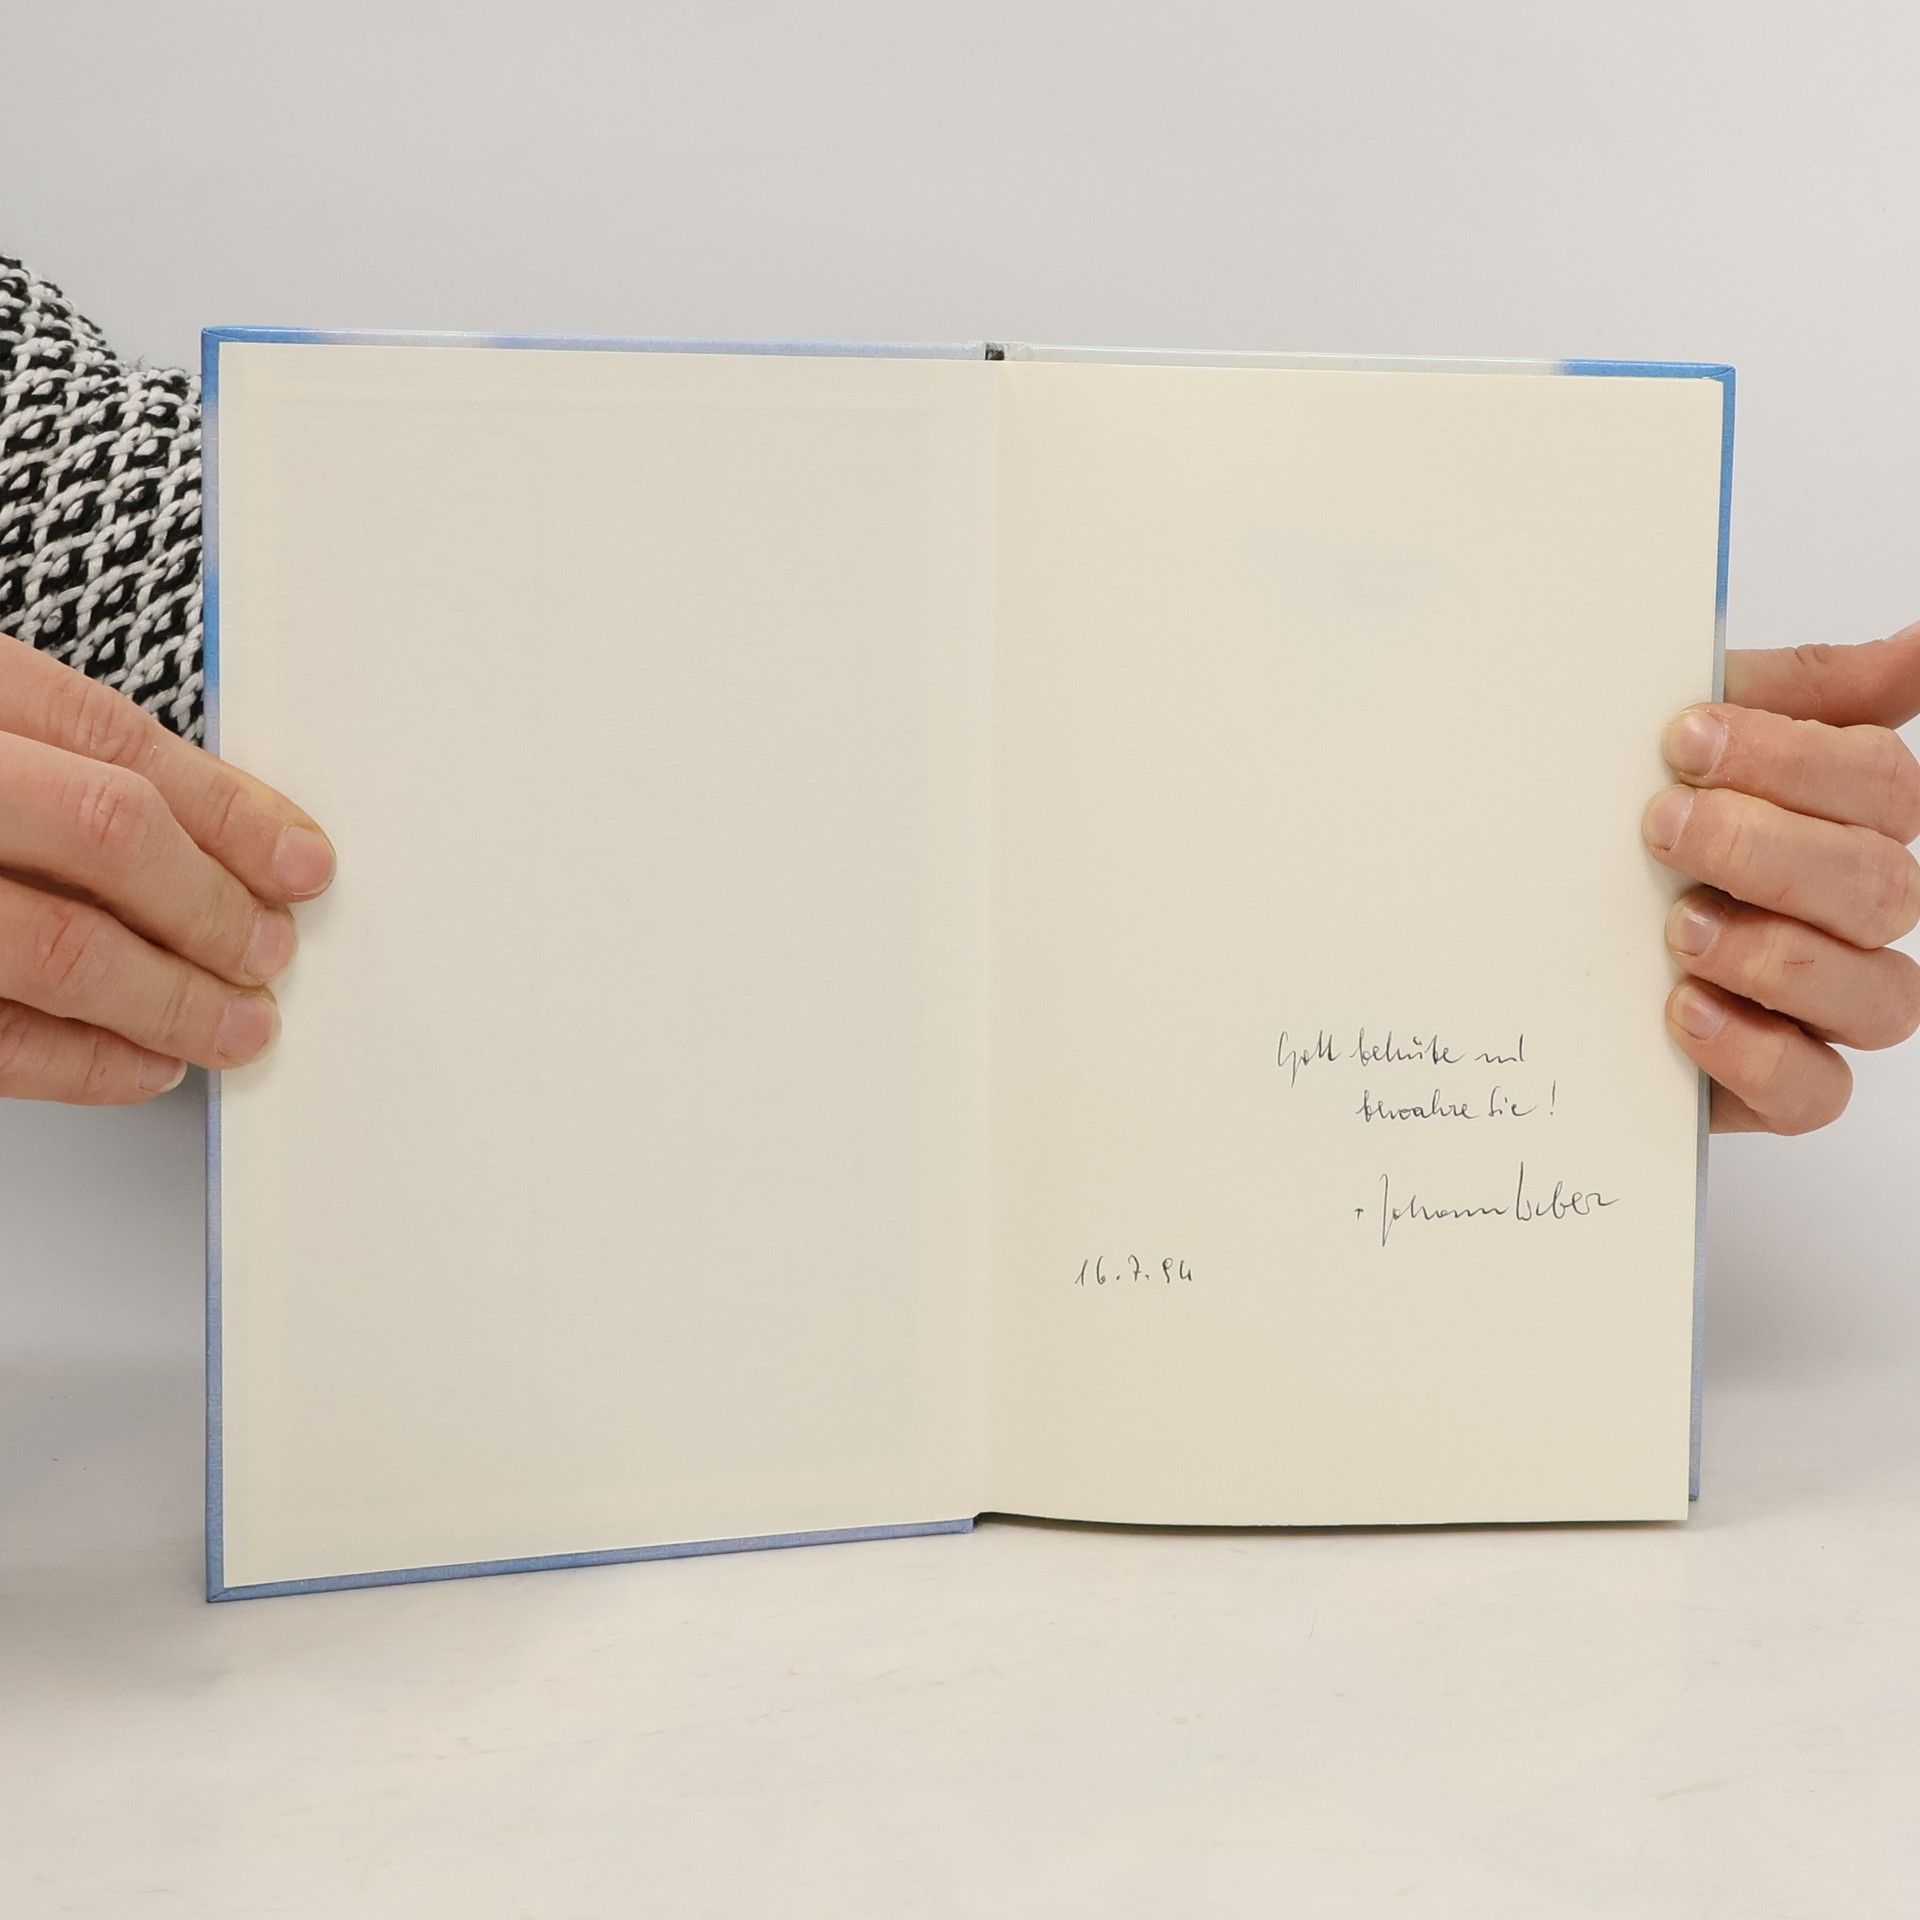 Gott behüte und
bewahre Sie!
+ Johann Weber
16.7.94